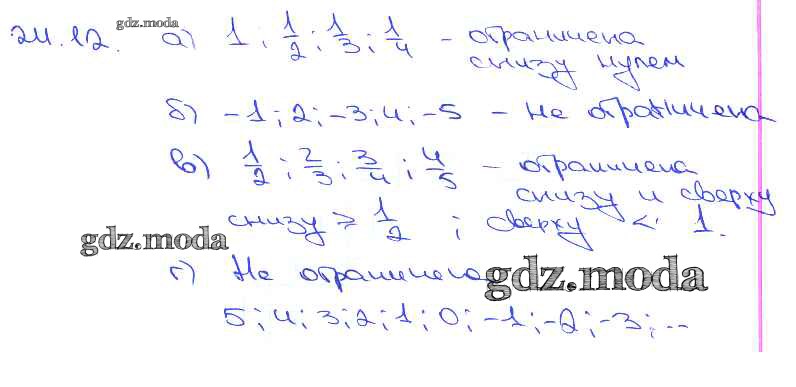 gdz.moda
24.12. а) 1; 1/2; 1/3; 1/4 - ограничена
снизу нулем
б) -1; 2; -3; 4; -5 - не ограничена
в) 1/2; 2/3; 3/4; 4/5 - ограничена
снизу и сверху
снизу ≥ 1/2 ; сверху < 1.
gdz.moda
г) Не ограничена
gdz.moda
5; 4; 3; 2; 1; 0; -1; -2; -3; ...